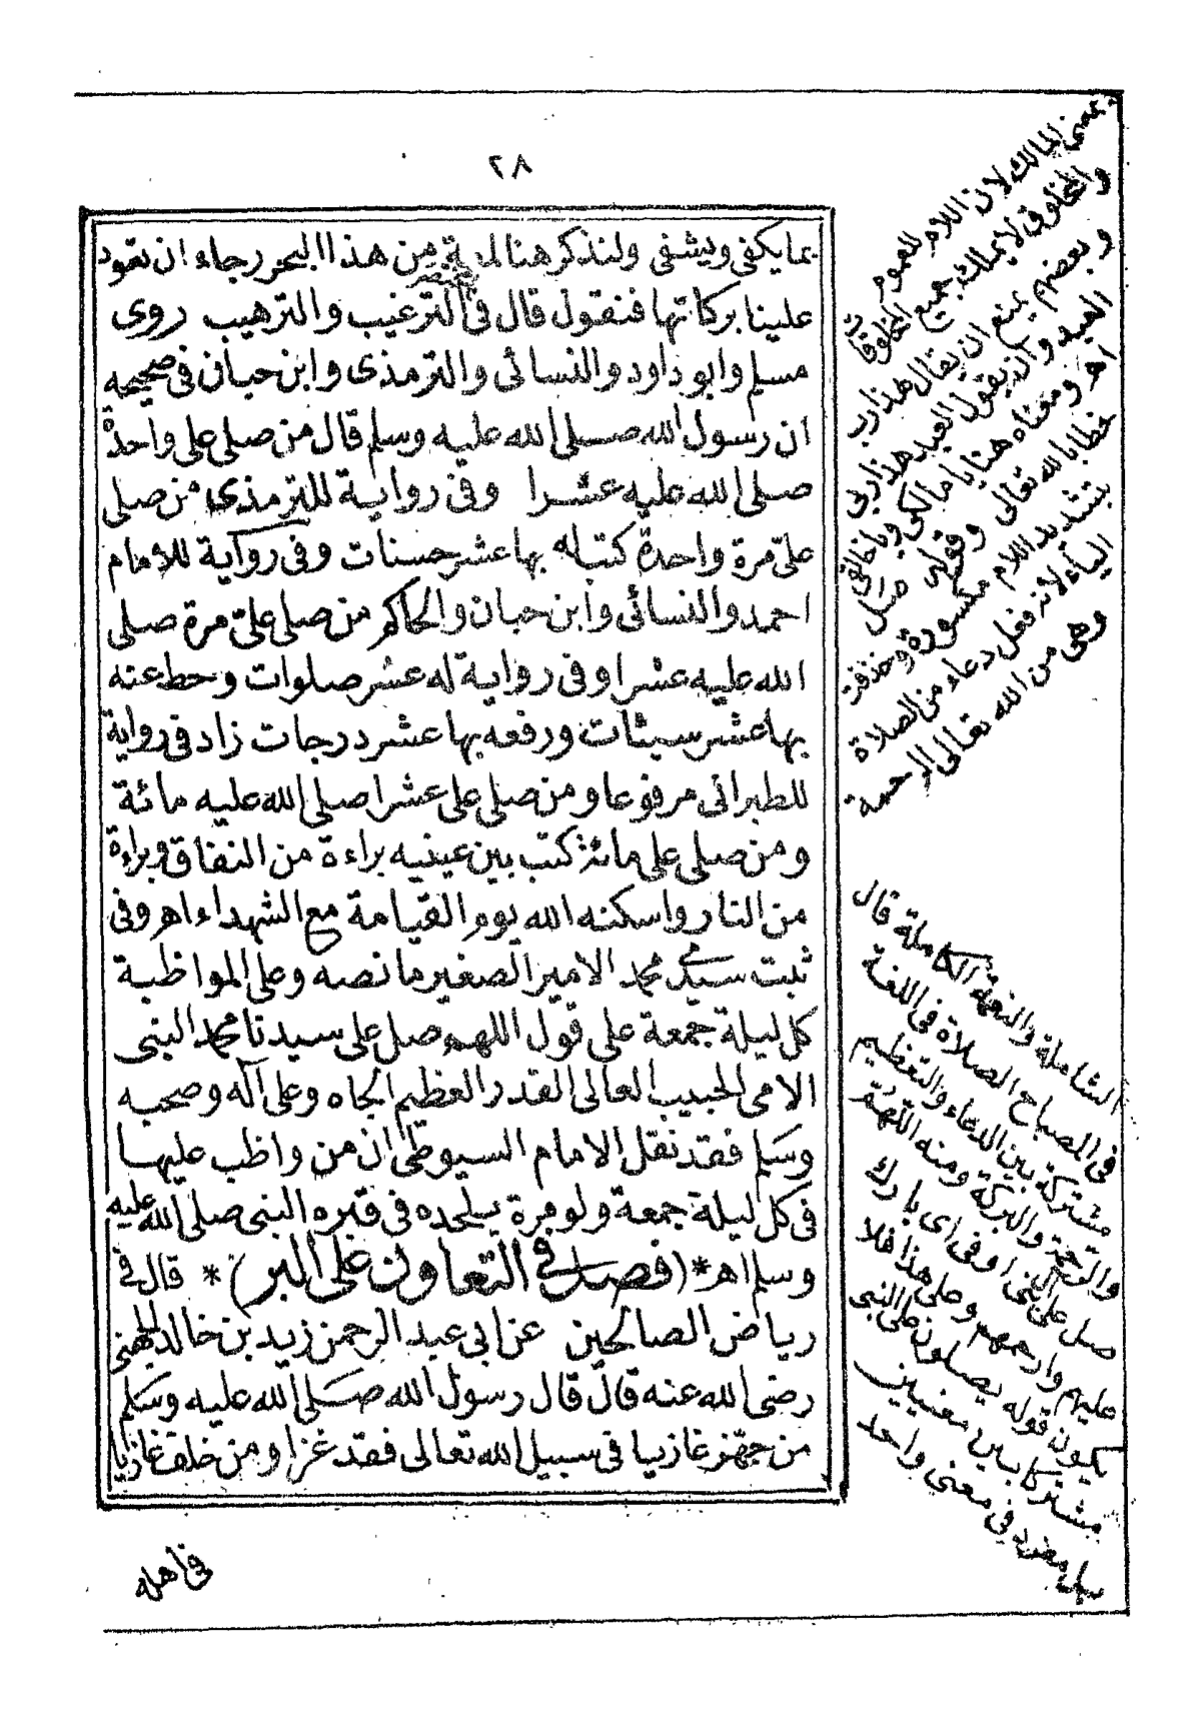 ٢٨
بما يكفى ويشفى ولنذكر هنا لمعة من هذا البحر رجاء ان تعود
علينا بركاتها فنقول قال فى الترغيب والترهيب روى
مسلم وابو داود والنسائى والترمذى وابن حبان فى صحيحه
ان رسول الله صلى الله عليه وسلم قال من صلى على واحدة
صلى الله عليه عشرا وفى رواية للترمذى من صلى
علىّ مرة واحدة كتب له بها عشر حسنات وفى رواية للامام
احمد والنسائى وابن حبان والحاكم من صلى علىّ مرة صلى
الله عليه عشرا وفى رواية له عشر صلوات وحط عنه
بها عشر سيئات ورفعه بها عشر درجات زاد فى رواية
للطبرانى مرفوعا ومن صلى على عشرا صلى الله عليه مائة
ومن صلى على مائة كتب بين عينيه براءة من النفاق وبراءة
من النار واسكنه الله يوم القيامة مع الشهداء اهـ وفى
ثبت سيدى محمد الامير الصغير ما نصه وعلى المواظبة
كل ليلة جمعة على قول اللهم صل على سيدنا محمد النبى
الامى الحبيب العالى القدر العظيم الجاه وعلى آله وصحبه
وسَلم فقد نقل الامام السيوطى ان من واظب عليها
فى كل ليلة جمعة ولو مرة يلحده فى قبره النبى صلى الله عليه
وسلم اهـ *(فصل فى التعاون على البر)* قال فى
رياض الصالحين عن ابى عبد الرحمن زيد بن خالد الجهنى
رضى الله عنه قال قال رسول الله صَلى الله عليه وسَلم
من جهّز غازيا فى سبيل الله تعالى فقد غزا ومن خلف غازيا
فى اهله
بمعنى المالك لان اللام للعموم
والمخلوق لا يملك جميع المخلوقات
وبعضهم يمنع ان يقال هذا رب
العبد وان يقول العبد هذا ربى
اهـ ومعناه هنا يا مالكى ويا خالقى
خطابا لله تعالى وقوله صَل
بتشديد اللام مكسورة وحذفت
الياء لانه فعل دعاء من الصلاة
وهى من الله تعالى الرحمة
الشاملة والنعمة الكاملة قال
فى المصباح الصلاة فى اللغة
مشتركة بين الدعاء والتعظيم
والرحمة والبركة ومنه اللهمّ
صل على آل ابى اوفى اى بارك
عليهم وارحمهم وعلى هذا فلا
يكون قوله يصلون على النبى
مشتركا بين معنيين
بل مفرد فى معنى واحد